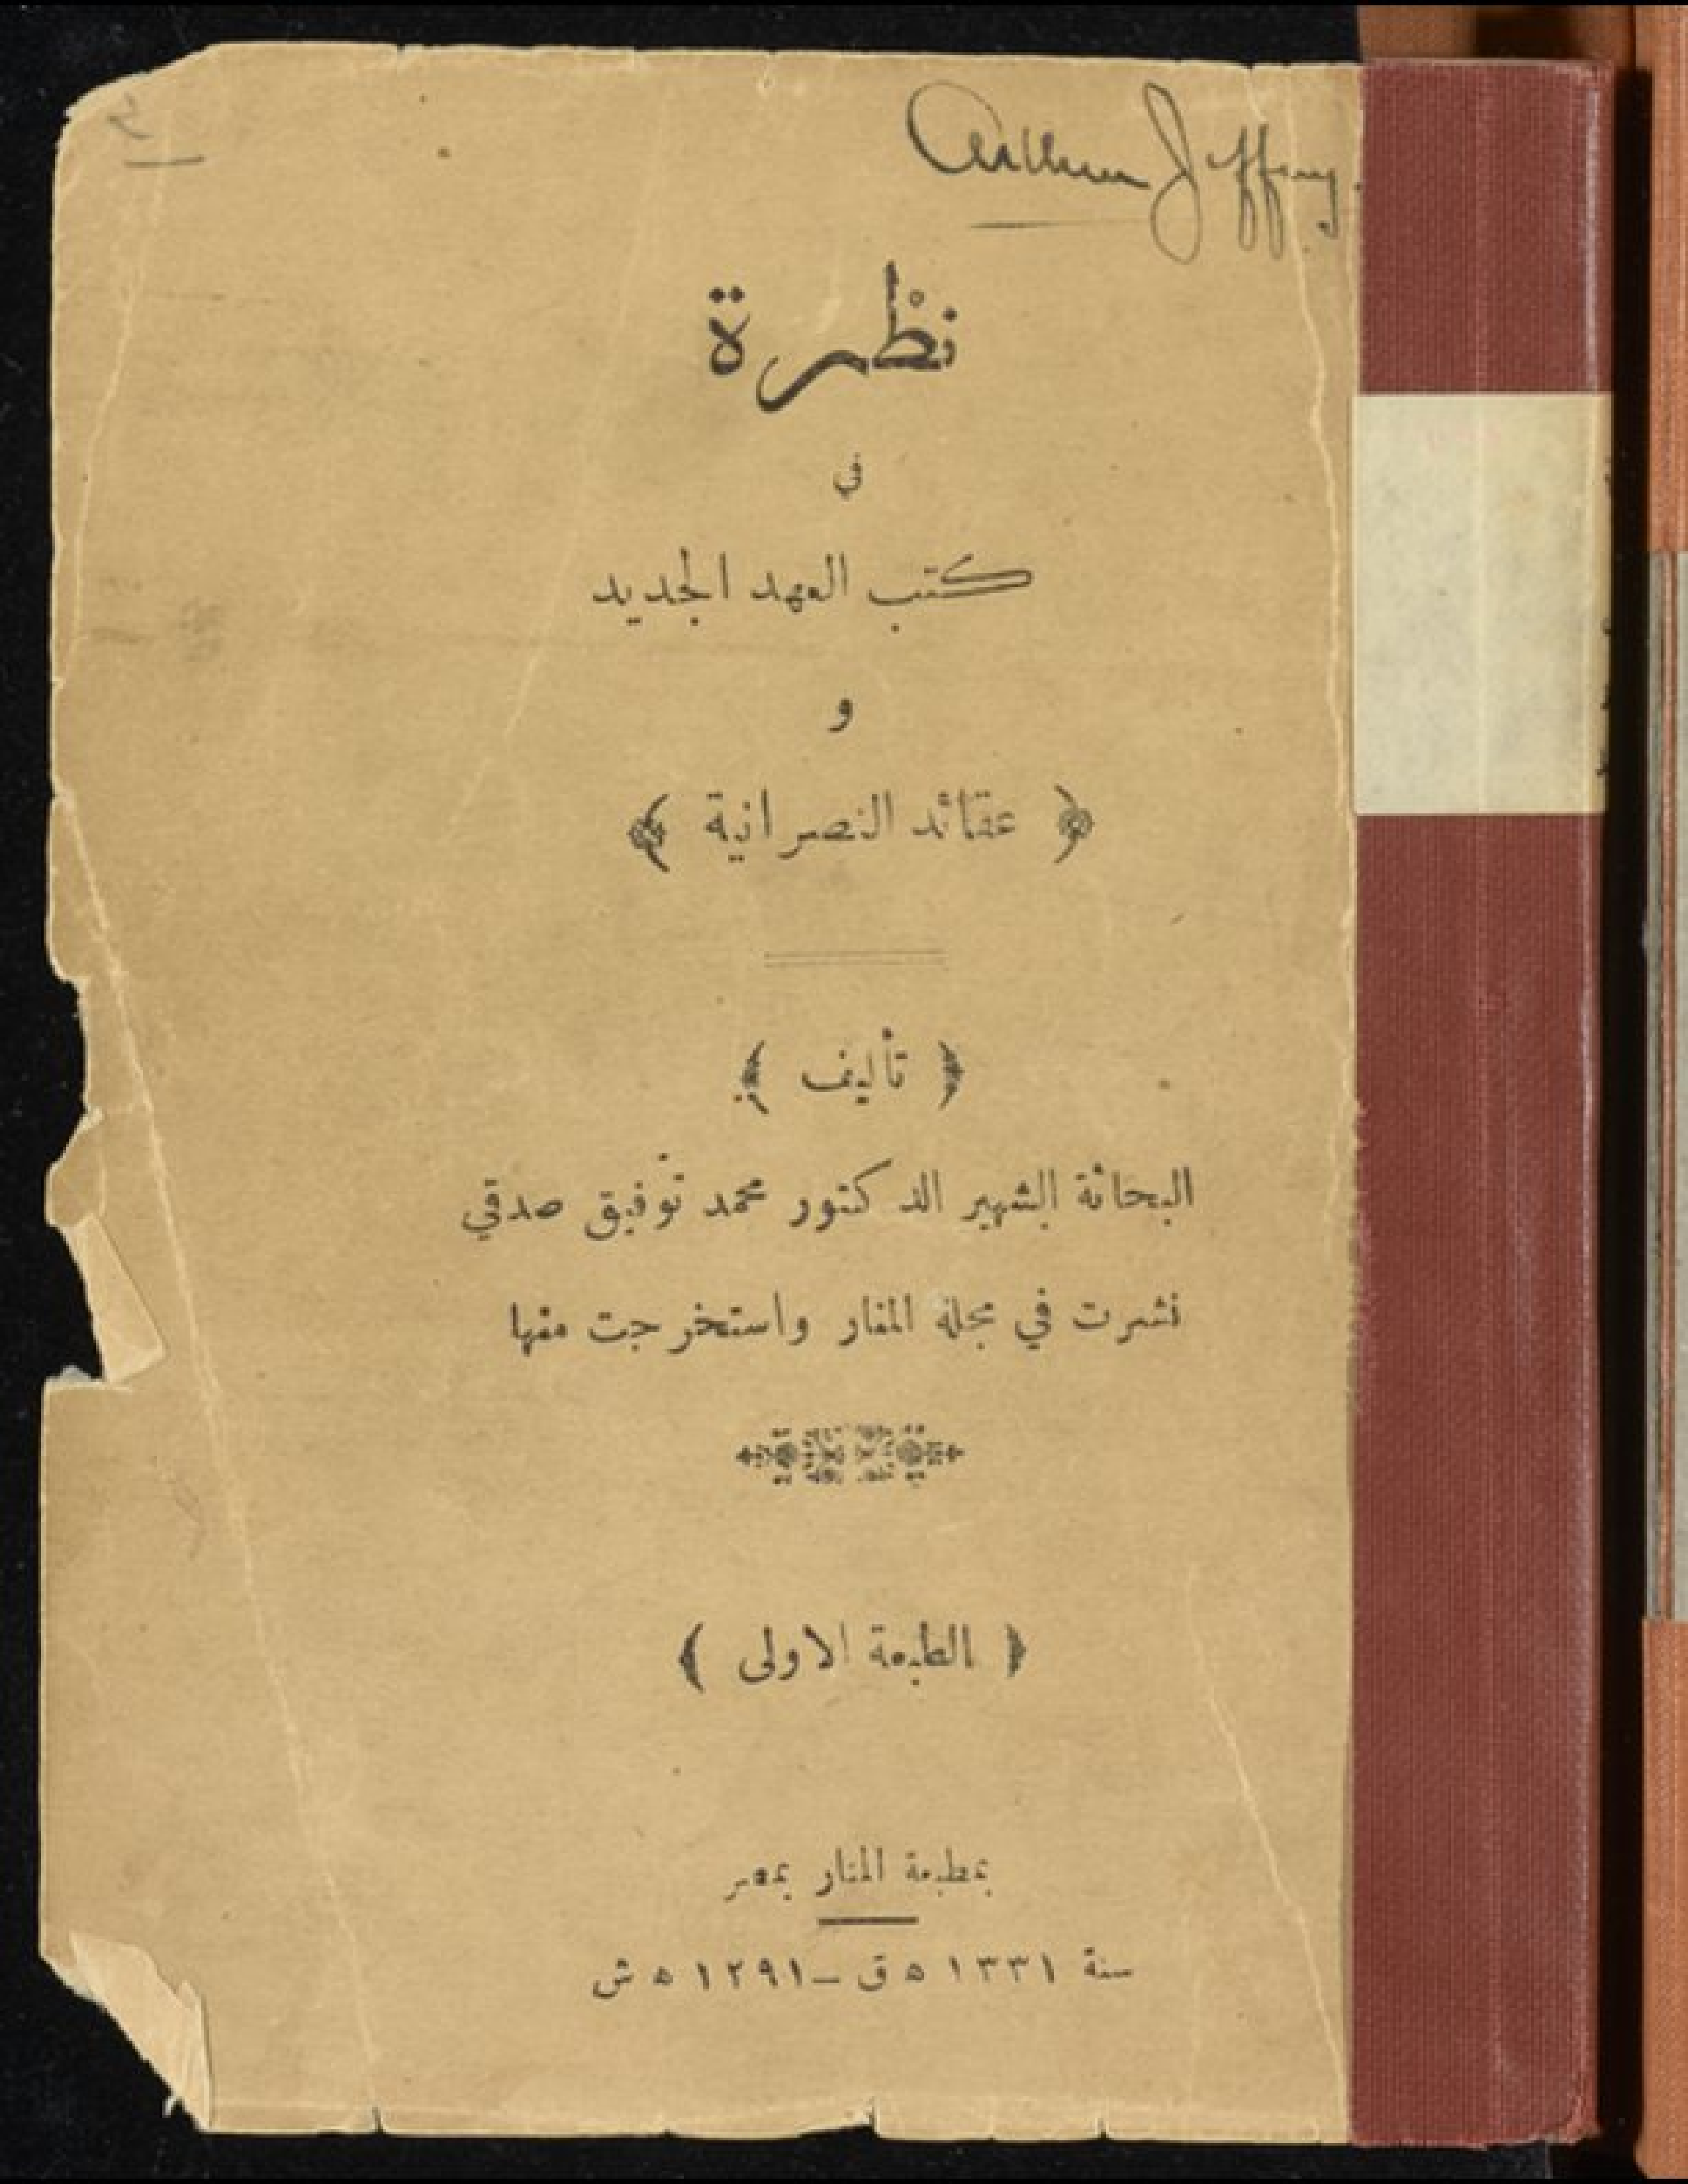 Arthur Jeffery.
نظْرة
في
كتب العهد الجديد
و
﴿ عقائد النصرانية ﴾
﴿ تأليف ﴾
البحاثة الشهير الدكتور محمد توفيق صدقي
نشرت في مجلة المنار واستخرجت منها
﴿ الطبعة الاولى ﴾
بمطبعة المنار بمصر
سنة ١٣٣١ ه ق — ١٢٩١ ه ش